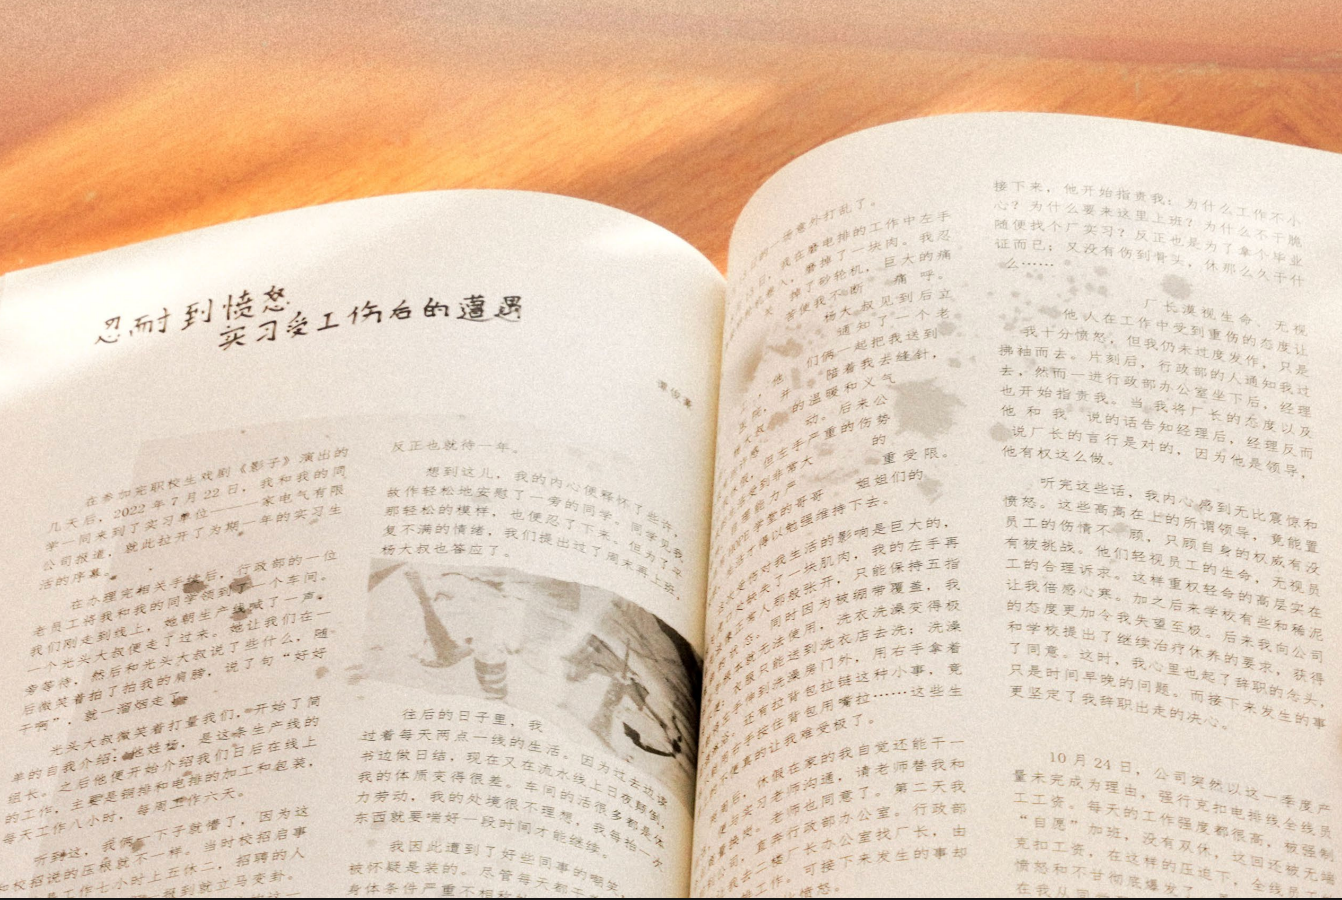 忍耐到愤怒
实习受工伤后的遭遇
在参加完职校生戏剧《影子》演出的
几天后，2022年7月22日，我和我的同
学一同来到了实习单位——家电气有限
公司报道，就此拉开了为期一年的实习生
活的序幕。
在办理完相关手续后，行政部的一位
老员工将我和我的同学领到了一个车间。
我们刚走到线上，她朝生产线喊了一声。
一个光头大叔便走了过来。她让我们在一
旁等待，然后和光头大叔说了些什么，随
后微笑着拍了拍我的肩膀，说了句“好好
干啊”，就一溜烟走了。
光头大叔微笑着打量我们，开始了简
单的自我介绍：他姓杨，是这条生产线的
组长。之后他便开始介绍我们日后在线上
的工作，主要是铜排和电排的加工和包装，
每天工作八小时，每周工作六天。
听到这，我俩一下子就懵了，因为这
和校招说的压根就不一样。当时校招启事
工作七小时上五休二，招聘的人
报到就立马变卦。
反正也就待一年。
想到这儿，我的内心便释怀了些许，
故作轻松地安慰了一旁的同学。同学见我
那轻松的模样，也便忍了下来。但为了平
复不满的情绪，我们提出过了周末再上班，
杨大叔也答应了。
往后的日子里，我
过着每天两点一线的生活。因为过去边读
书边做日结，现在又在流水线上日夜颠倒，
我的体质变得很差。车间的活很多都是体
力劳动，我的处境很不理想，我每抬一次
东西就要喘好一段时间才能继续。
我因此遭到了好些同事的嘲笑，
被怀疑是装的。尽管每天都
身体条件严重不相
意外打乱了。
我在磨电排的工作中左手
磨掉了一块肉。我忍
掉了砂轮机，巨大的痛
苦使我不断 痛呼。
杨大叔见到后立
通知了一个老
们俩一起把我送到
陪着我去缝针，
的温暖和义气
动。后来公
但左手严重的伤势
的
受到非常大 重受限。
学堂的哥哥 姐姐们的
才得以勉强维持下去。
对我生活的影响是巨大的，
缺失了一块肌肉，我的左手再
正常人那般张开，只能保持五指
状态。同时因为被绷带覆盖，我
根本就无法使用，洗衣洗澡变得极
衣服只能送到洗衣店去洗；洗澡
左手伸到洗澡房门外，用右手拿着
还有拉背包拉链这种小事，竟
用右手按住背包用嘴拉……这些生
不便真的让我难受极了。
休假在家的我自觉还能干一
便与实习老师沟通，请老师替我和
换岗。老师也同意了。第二天我
公司，直奔行政部办公室。行政部
我去二楼厂长办公室找厂长，由
工作。可接下来发生的事却
愤怒。
接下来，他开始指责我：为什么工作不小
心？为什么要来这里上班？为什么不干脆
随便找个厂实习？反正也是为了拿个毕业
证而已；又没有伤到骨头，休那么久干什
么……
厂长漠视生命、无视
他人在工作中受到重伤的态度让
我十分愤怒，但我仍未过度发作，只是
拂袖而去。片刻后，行政部的人通知我过
去，然而一进行政部办公室坐下后，经理
也开始指责我。当 我将厂长的态度以及
他 和 我 说的话告知经理后，经理反而
说厂长的言行是对的，因为他是领导，
他有权这么做。
听完这些话，我内心感到无比震惊和
愤怒。这些高高在上的所谓领导，竟能置
员工的伤情不 顾，只顾自身的权威有没
有被挑战。他们轻视员工的生命，无视员
工的合理诉求。这样重权轻命的高层实在
让我倍感心寒。加之后来学校有些和稀泥
的态度更加令我失望至极。后来我向公司
和学校提出了继续治疗休养的要求，获得
了同意。这时，我心里也起了辞职的念头，
只是时间早晚的问题。而接下来发生的事
更坚定了我辞职出走的决心。
10月24日，公司突然以这一季度产
量未完成为理由，强行克扣电排线全线员
工工资。每天的工作强度都很高，被强制
“自愿”加班，没有双休，这回还被无端
克扣工资，在这样的压迫下，全线员工
愤怒和不甘彻底爆发了。